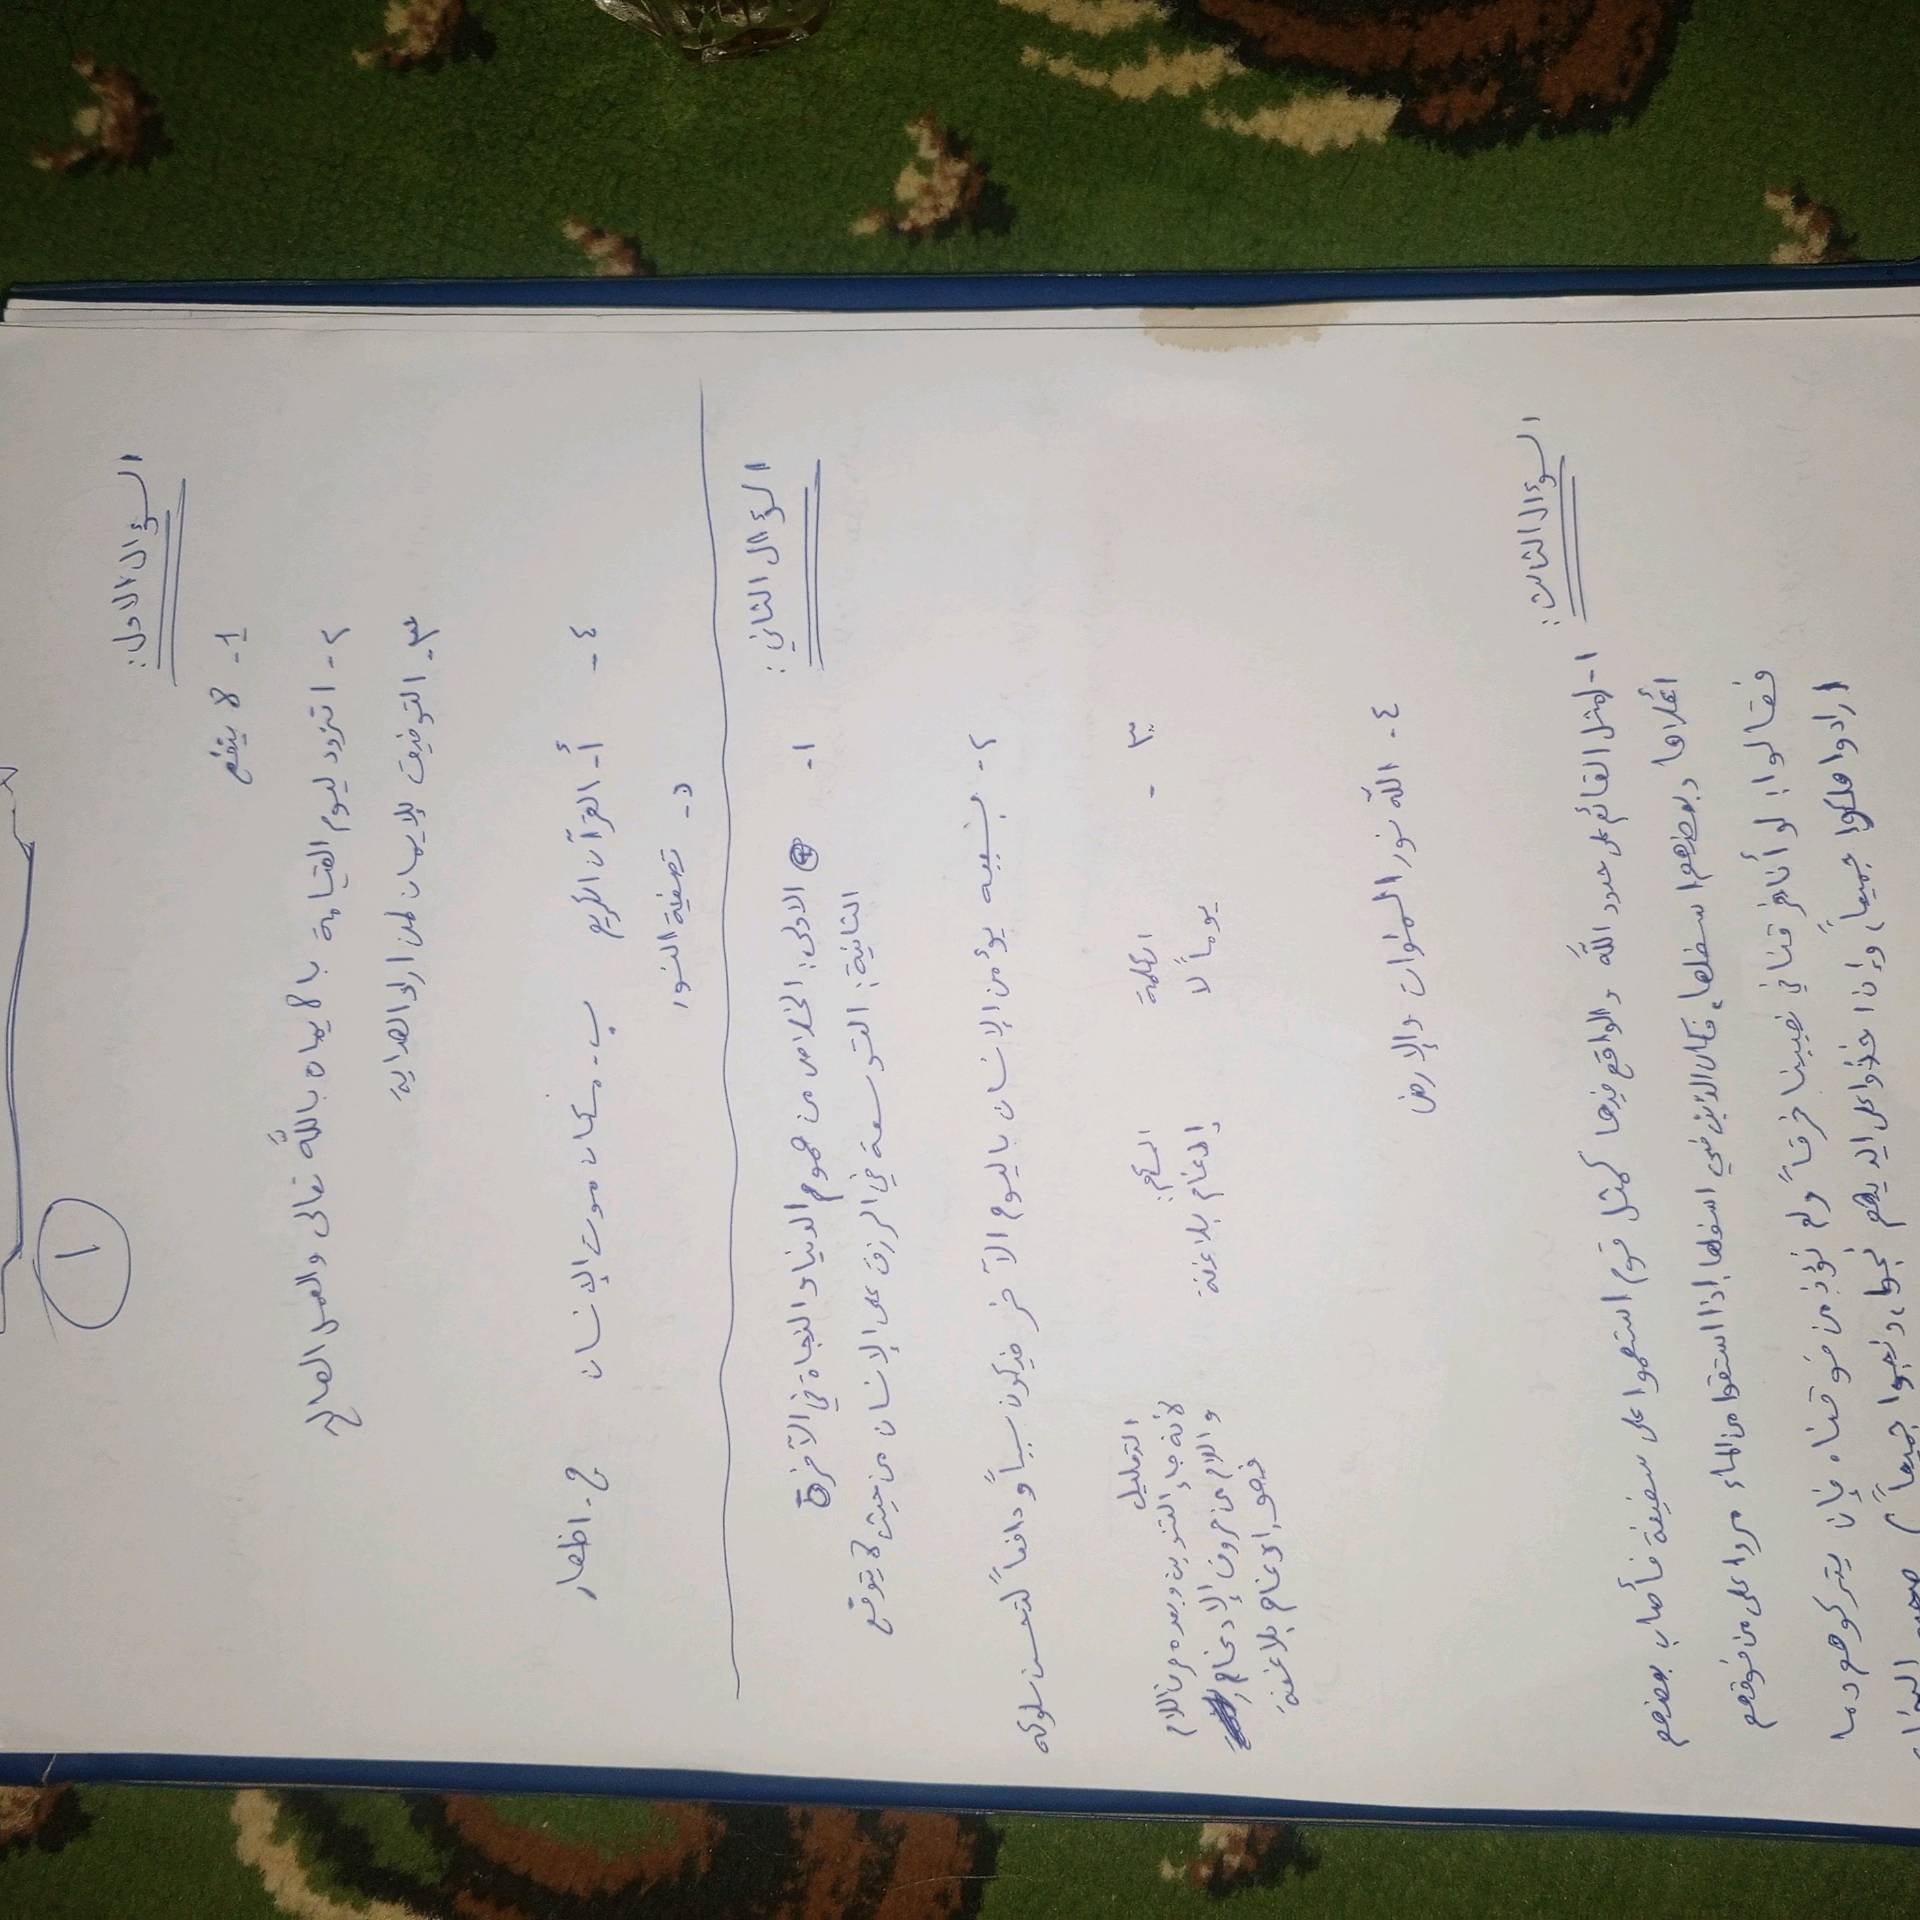 ١
السؤال الاول:
1- لا ينفع
٢- التزود ليوم القيامة بالايمان بالله تعالى والعمل الصالح
٣- التوفيق للإيمان لمن اراد الهداية
٤- أ- القرآن الكريم ب- مكان موت الإنسان ج- اظهار
د- تصفية النور
السؤال الثاني:
١- الاولى: الخلاص من هموم الدنيا و النجاة في الآخرة
الثانية: التوسعة في الرزق على الإنسان من حيث لا يتوقع
٢- بسببه يؤمن الإنسان باليوم الآخر فيكون سبباً و دافعاً لتحسن سلوكه
٣- الكلمة الحكم: التعليل
يوماً لا إدغام بلا غنة لأنه جاء التنوين وبعده حرف اللام
و اللام من حروف الإدغام
فهو ادغام بلا غنة
٤- الله نور السموات والإرض
السؤال الثالث:
١- مثل القائم على حدود الله والواقع فيها كمثل قوم استهموا على سفينة فأصاب بعضهم
اعلاها و بعضهم اسفلها، فكان الذين في اسفلها اذا استقوا من الماء مروا على من فوقهم
فقالوا: لو أنا خرقنا في نصيبنا خرقاً ولم نؤذ من فوقنا، فإن يتركوهم وما
ارادوا هلكوا جميعاً، وإن اخذوا على ايديهم نجوا، ونجوا جميعاً